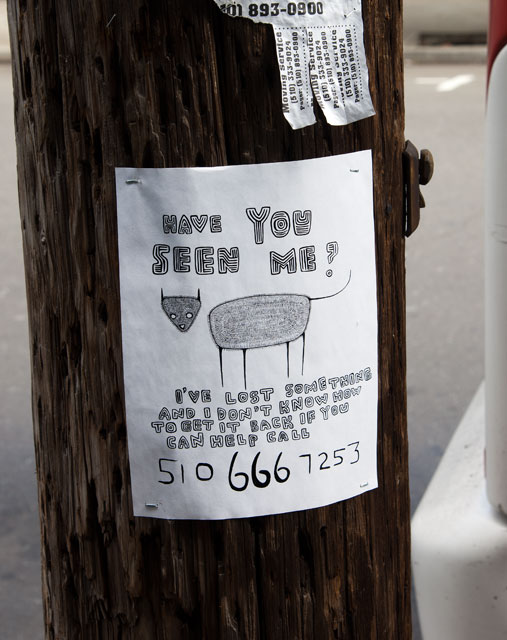 (510) 893-0900
Moving Service
(510) 333-9024
Pager: (510) 893-0900
Moving Service
(510) 333-9024
Pager: (510) 893-0900
HAVE YOU
SEEN ME?
I'VE LOST SOMETHING
AND I DON'T KNOW HOW
TO GET IT BACK IF YOU
CAN HELP CALL
510 666 7253